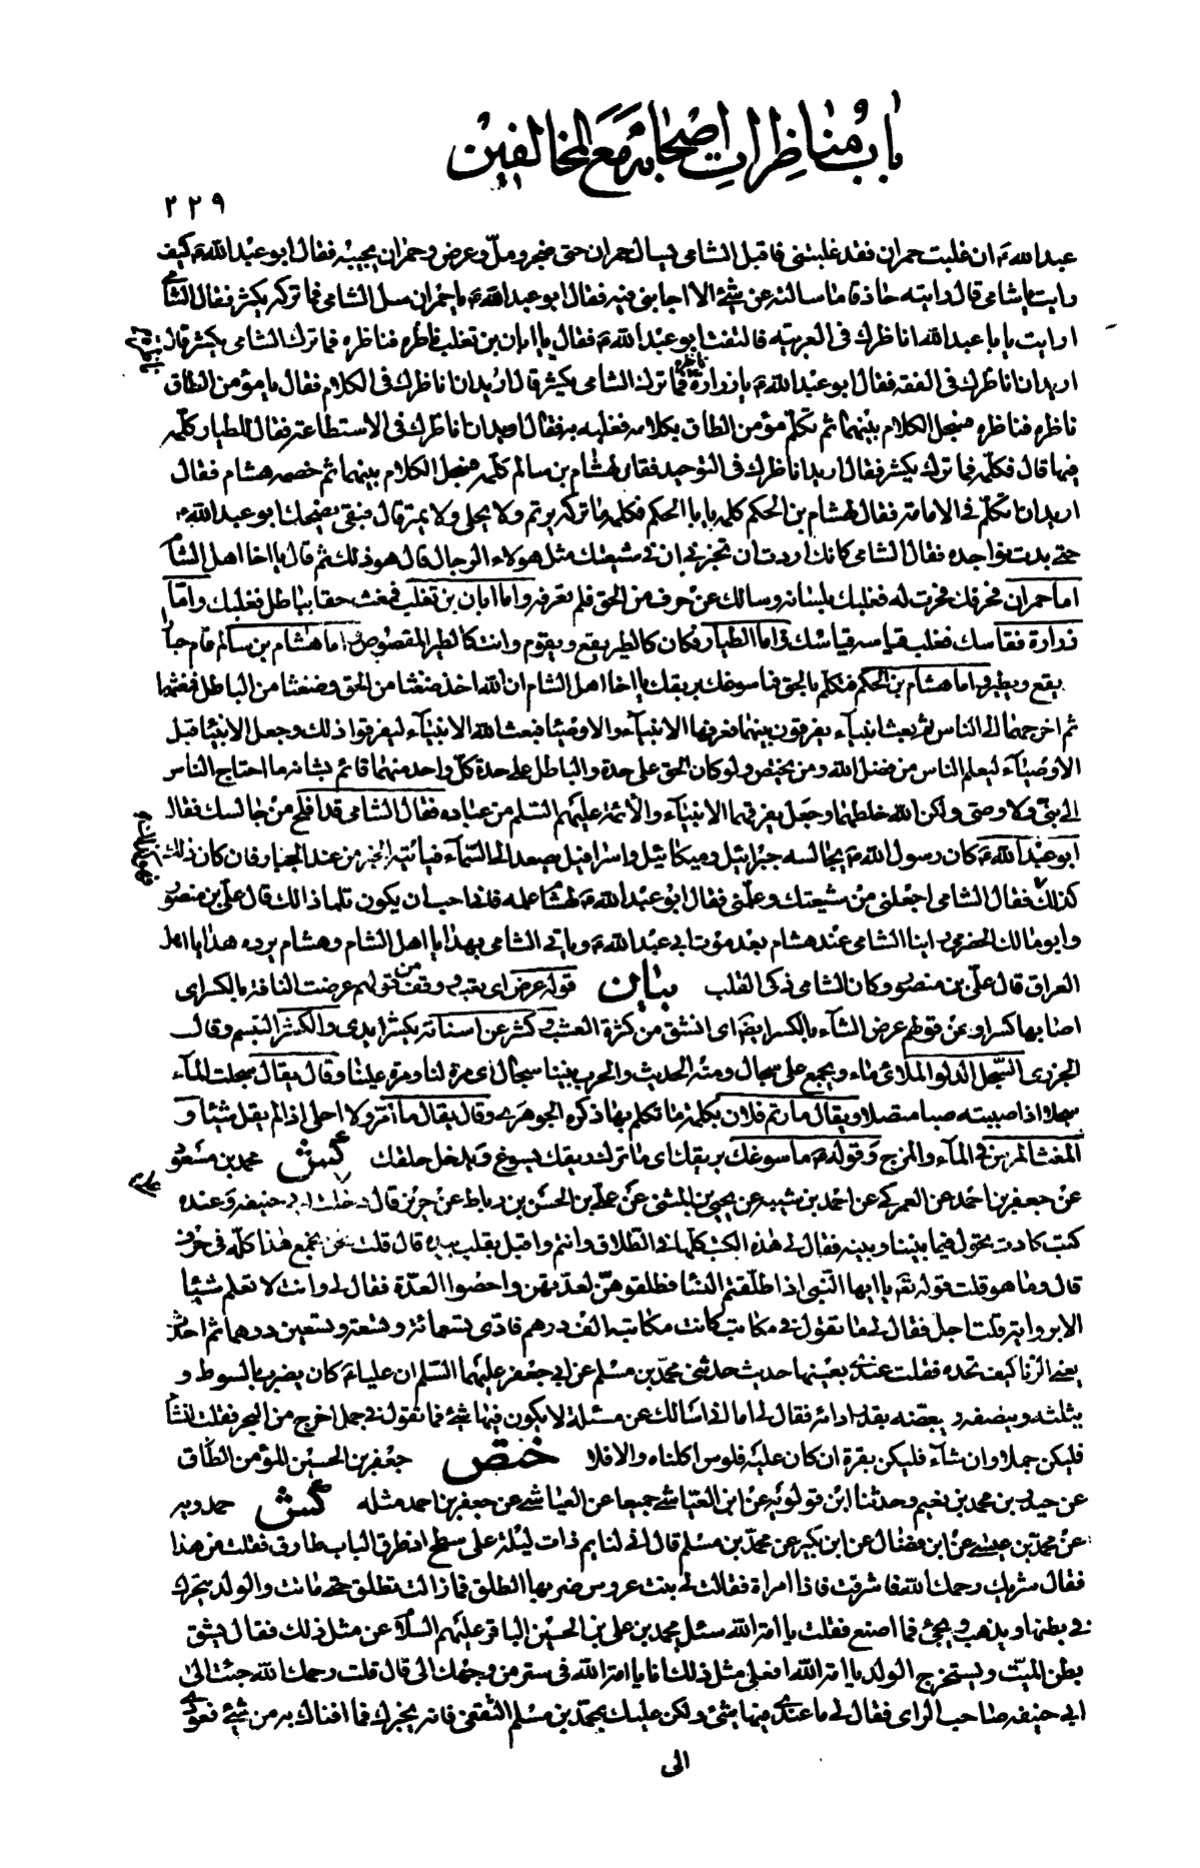 باب مناظرات اصحابه مع المخالفين
٢٢٩
عبد الله ع ان غلبت حمران فقد غلبتنى فاقبل الشامى يسال حمران حتى ضجر وملّ وعرض وحمران يجيبه فقال ابو عبد الله ع كيف
رايت يا شامى قال رايته حاذقا ما سالته عن شئ الا اجابنى فيه فقال ابو عبد الله ع يا حمران سل الشامى فما تركه يكشر فقال الشامى
ارايت يا با عبد الله اناظرك فى العربية فالتفت ابو عبد الله ع فقال يا ابان بن تغلب ناظره فناظره فما ترك الشامى يكشر قال
اريد ان اناظرك فى الفقه فقال ابو عبد الله ع يا زرارة ناظره فما ترك الشامى يكشر قال اريد ان اناظرك فى الكلام فقال يا مؤمن الطاق
ناظره فناظره فسجل الكلام بينهما ثم تكلم مؤمن الطاق بكلامه فغلبه به فقال اريد ان اناظرك فى الاستطاعة فقال للطيار كلّمه
فيها قال فكلّمه فما ترك يكشر فقال اريد اناظرك فى التوحيد فقال لهشام بن سالم كلّمه فسجل الكلام بينهما ثم خصمه هشام فقال
اريد ان اتكلم فى الامامة فقال لهشام بن الحكم كلمه يا با الحكم فكلمه ما تركه يرتم ولا يحلى ولا يمر قال فبقى يضحك ابو عبد الله ع
حتى بدت نواجده فقال الشامى كانك اردت ان تخبرنى ان فى شيعتك مثل هولاء الرجال قال هو ذلك ثم قال يا اخا اهل الشام
اما حمران فحرفك فحرت له فغلبك بلسانه وسالك عن حرف من الحق فلم تعرفه واما ابان بن تغلب فمغث حقا بباطل فغلبك واما
زرارة فقاسك فغلب قياسه قياسك واما الطيار فكان كالطير يقع ويقوم وانت كالطير المقصوص واما هشام بن سالم قام حبارى
يقع ويطير واما هشام بن الحكم فتكلم بالحق فما سوغك بريقك يا اخا اهل الشام ان الله اخذ ضغثا من الحق وضغثا من الباطل فمغثهما
ثم اخرجهما الى الناس ثم بعث انبيآء يفرقون بينهما فعرفها الانبيآء والاوصيآء فبعث الله الانبيآء ليفرقوا ذلك وجعل الانبيآء قبل
الاوصيآء ليعلم الناس من فضل الله ومن يختص ولو كان الحق على حدة والباطل على حدة كلّ واحد منهما قائم بشانه ما احتاج الناس
الى نبى ولا وصى ولكن الله خلطهما وجعل يفرقهما الانبيآء والائمة عليهم السلم من عباده فقال الشامى قد افلح من جالسك فقال
ابو عبد الله ع كان رسول الله ص يجالسه جبرائيل وميكائيل واسرافيل يصعد الى السّمآء فياتيه الخبر من عند الجبار فان كان ذلك
كذلك فقال الشامى اجعلنى من شيعتك وعلّمنى فقال ابو عبد الله ع لهشام علمه فانى احب ان يكون تلماذا لك قال على بن منصور
وابو مالك الحضرمى راينا الشامى عند هشام بعد موت ابى عبد الله ع وياتى الشامى بهدايا اهل الشام وهشام يرده هدايا اهل
العراق قال على بن منصور وكان الشامى ذكى القلب بيان قوله عرض اى تعب ووقف من قولهم عرضت الناقة بالكسر اى
اصابها كسر او من قولهم عرض الشآء بالكسر ايضا اى انشق من كثرة العشب وكشر عن اسنانه يكشر ابدى والكشر التبسم وقال
الجزرى السّجل الدلو الملائ ماء ويجمع على سجال ومنه الحديث والحرب بيننا سجال اى مرة لنا ومرة علينا وقال يقال سجلت المآء
سجلا اذا صببته صبا متصلا ويقال ما رتم فلان بكلمة ما تكلم بها ذكره الجوهرى وقال يقال ما امر ولا احلى اذا لم يقل شيئا و
المغث المرس فى المآء والمزج وقوله ع ما سوغك بريقك اى ما ترك ريقك يسوغ ويدخل حلقك كش محمد بن مسعود
عن جعفر بن احمد عن العمركى عن احمد بن شيبة عن يحيى بن المثنى عن على بن الحسن بن رباط عن حريز قال دخلت على ابى حنيفة وعنده
كتب كادت تحول فيما بيننا وبينه فقال لى هذه الكتب كلّها فى الطّلاق وانتم واقبل يقلب بيده قال قلت نحن نجمع هذا كلّه فى حرف
قال وما هو قلت قوله تع يا ايها النّبى اذا طلّقتم النسآء فطلقوهنّ لعدّتهنّ واحصوا العدّة فقال لى وانت لا تعلم شيئا
الا برواية قلت اجل فقال لى ما تقول فى مكاتب كانت مكاتبته الف درهم فادّى تسعمائة وتسعة وتسعين درهما ثم احدث
يعنى الزنا كيف تحده فقلت عندى بعينها حديث حدثنى محمّد بن مسلم عن ابى جعفر عليهما السّلم ان عليا ع كان يضرب بالسوط و
بثلثه وبنصفه وببعضه بقدر ادائه فقال لى اما انى اسالك عن مسئلة لا يكون فيها شئ فما تقول فى جمل اخرج من البحر فقلت ان شآء
فليكن جملا وان شآء فليكن بقرة ان كان عليه فلوس اكلناه والا فلا ختص جعفر بن الحسين المؤمن الطّاق
عن حيدر بن محمد بن نعيم وحدثنا ابن قولويه عن ابن العيّاشى جميعا عن العياشى عن جعفر بن احمد مثله كش حمدويه
عن محمد بن عيسى عن ابن فضال عن ابن بكير عن محمّد بن مسلم قال انى لنائم ذات ليلة على سطح اذ طرق الباب طارق فقلت من هذا
فقال شريك رحمك الله فاشرفت فاذا امراة فقالت لى بنت عروس ضربها الطلق فما زالت تطلق حتى ماتت والولد يتحرك
فى بطنها ويذهب ويجئ فما اصنع فقلت يا امة الله سئل محمد بن على بن الحسين الباقر عليهم السّلام عن مثل ذلك فقال يشق
بطن الميّت ويستخرج الولد يا امة الله افعلى مثل ذلك انا يا امة الله فى ستر من وجّهك الىّ قال قلت رحمك الله جئت الى
ابى حنيفة صاحب الراى فقال لى ما عندى فيها شئ ولكن عليك بمحمّد بن مسلم الثقفى فانه يخبرك فما افتاك به من شئ فعودى
الى